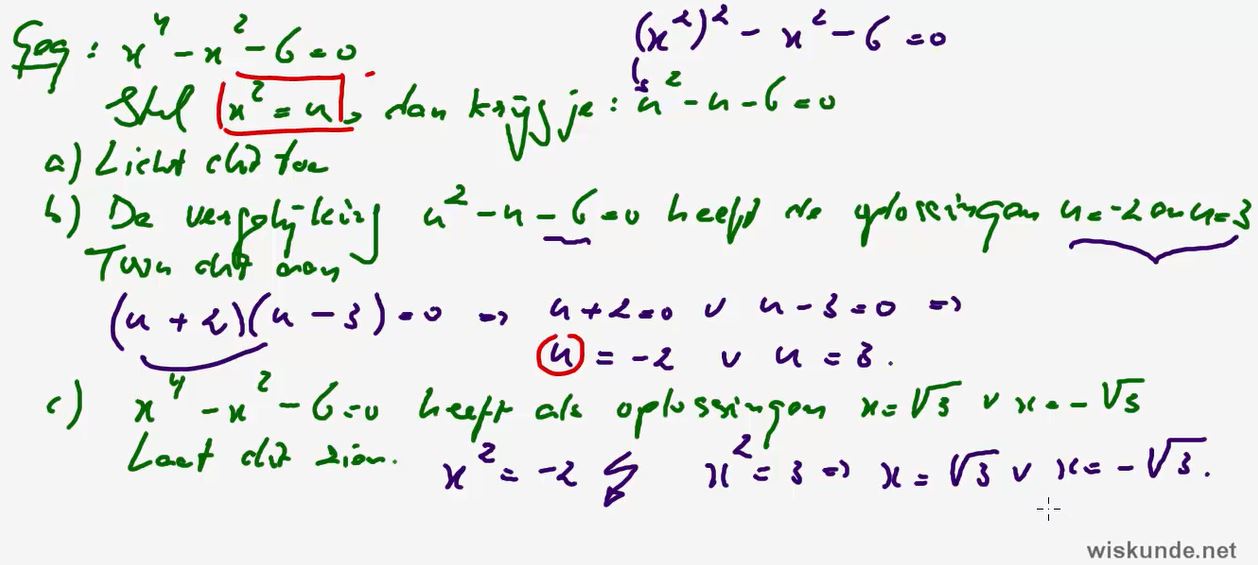 Geg: x⁴ - x² - 6 = 0 (x²)² - x² - 6 = 0
Stel x² = u, dan krijg je: u² - u - 6 = 0
a) Licht dit toe
b) De vergelijking u² - u - 6 = 0 heeft als oplossingen u = -2 en u = 3
Toon dit aan
(u + 2)(u - 3) = 0 => u + 2 = 0 v u - 3 = 0 =>
u = -2 v u = 3.
c) x⁴ - x² - 6 = 0 heeft als oplossingen x = √3 v x = -√3
Laat dit zien. x² = -2 x² = 3 => x = √3 v x = -√3.
wiskunde.net